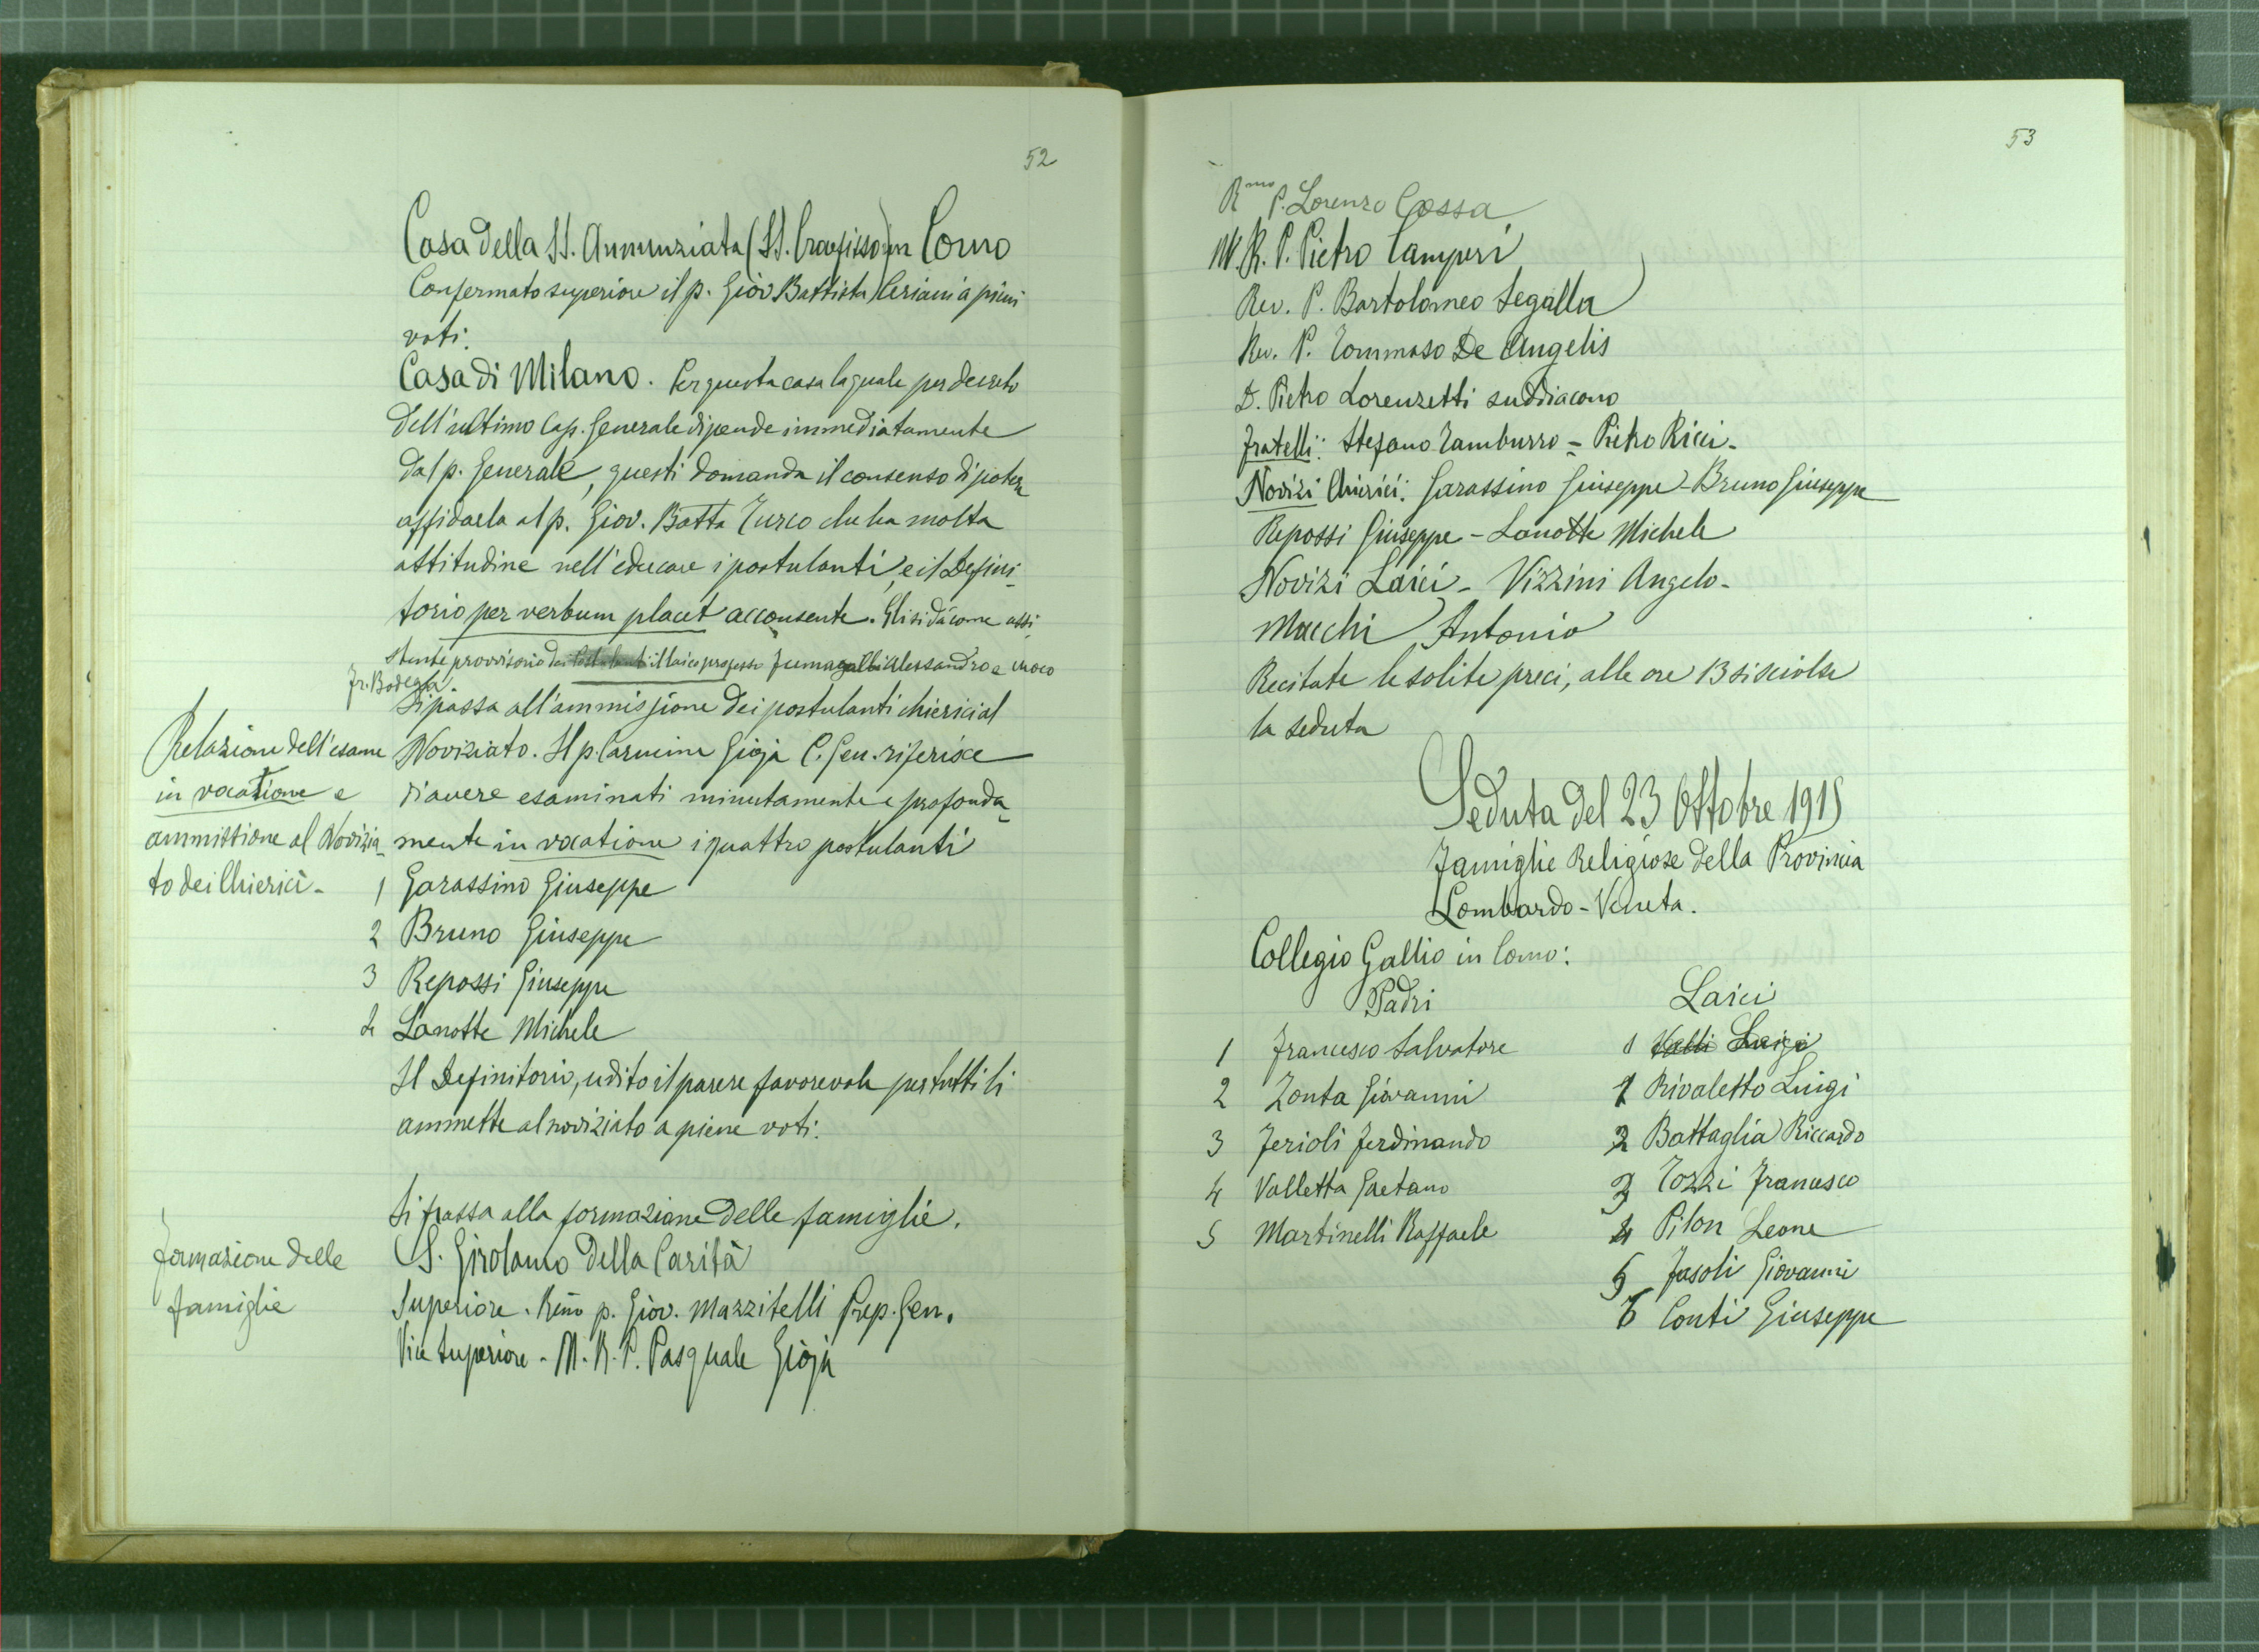 52
Casa della SS. Annunziata (SS. Crocefisso) in Como
Confermato superiore il p. Giov Battista Ceriani a pieni
voti.
Casa di Milano. Per questa casa la quale per decreto
dell'ultimo Cap. Generale dipende immediatamente
dal p. Generale, questi domanda il consenso di poter
affidarla al p. Giov. Batta Turco che ha molta
attitudine nell'educare i postulanti, e il Defini-
torio per verbum placet acconsente. Gli si dà come assi-
stente provvisorio dei Postulanti il laico professo Fumagalli Alessandro e cuoco
Fr. Bodega
Si passa all'ammissione dei postulanti chierici al
Relazione dell'esame
in vocatione e
ammissione al Novizia-
to dei Chierici-
Noviziato. Il p. Carmine Gioja C. Gen. riferisce
di avere esaminati minutamente e profonda-
mente in vocatione i quattro postulanti
1 Garassino Giuseppe
2 Bruno Giuseppe
3 Repossi Giuseppe
4 Lanotte Michele
Il Definitorio, udito il parere favorevole per tutti li
ammette al noviziato a piene voti.
Si passa alla formazione delle famiglie.
Formazione delle
famiglie
S. Girolamo della Carità
Superiore. Rẽmo p. Giov. Mazzitelli Prep. Gen.
Vice Superiore - M. R. P. Pasquale Gioja
53
Rmo P. Lorenzo Cossa
M. R. P. Pietro Camperi
Rev. P. Bartolomeo Segalla
Rev. P. Tommaso De Angelis
D. Pietro Lorenzetti suddiacono
Fratelli: Stefano Tamburro - Pietro Ricci-
Novizi Chierici: Garassino Giuseppe - Bruno Giuseppe
Repossi Giuseppe - Lanotte Michele
Novizi Laici - Vizzini Angelo-
Macchi Antonio
Recitate le solite preci, alle ore 13 si sciolse
la seduta
Seduta del 23 Ottobre 1919
Famiglie Religiose della Provincia
Lombardo-Veneta.
Collegio Gallio in Como:
Padri
1 Francesco Salvatore
2 Zonta Giovanni
3 Ferioli Ferdinando
4 Valletta Gaetano
5 Martinelli Raffaele
Laici
1 Valli Luigi
1 Rivaletto Luigi
2 Battaglia Riccardo
3 Tozzi Francesco
4 Pilon Leone
5 Fasoli Giovanni
6 Conti Giuseppe